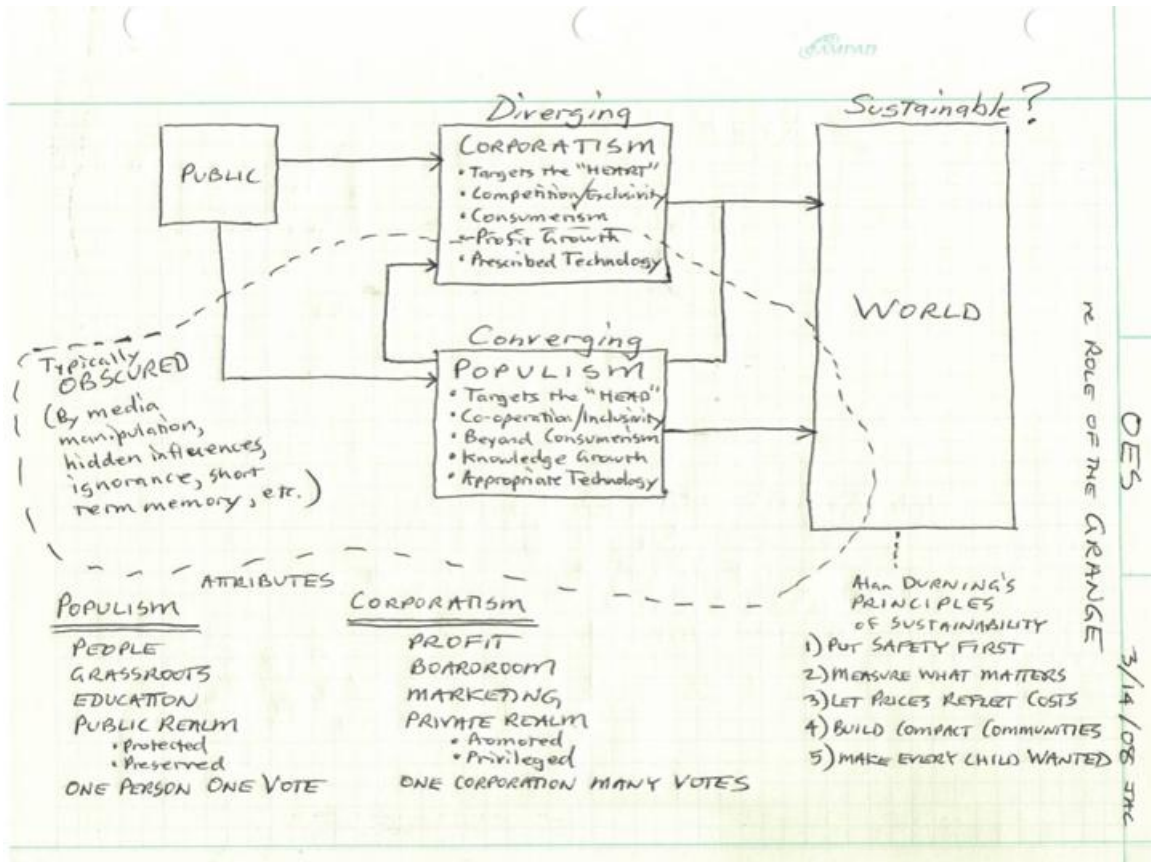 AMPAD
Diverging
Sustainable?
PUBLIC
CORPORATISM
• Targets the "HEART"
• Competition/Exclusivity
• Consumerism
• Profit Growth
• Prescribed Technology
Converging
POPULISM
• Targets the "HEAD"
• Co-operation/Inclusivity
• Beyond Consumerism
• Knowledge Growth
• Appropriate Technology
WORLD
Typically
OBSCURED
(By media
manipulation,
hidden influences,
ignorance, short
term memory, etc.)
ATTRIBUTES
POPULISM
PEOPLE
GRASSROOTS
EDUCATION
PUBLIC REALM
• Protected
• Preserved
ONE PERSON ONE VOTE
CORPORATISM
PROFIT
BOARDROOM
MARKETING
PRIVATE REALM
• Armored
• Privileged
ONE CORPORATION MANY VOTES
Alan DURNING'S
PRINCIPLES
OF SUSTAINABILITY
1) PUT SAFETY FIRST
2) MEASURE WHAT MATTERS
3) LET PRICES REFLECT COSTS
4) BUILD COMPACT COMMUNITIES
5) MAKE EVERY CHILD WANTED
re ROLE OF THE GRANGE
OES 3/14/08 JMC